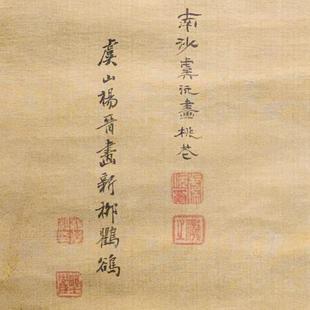 南沙虞沅畫桃花
虞山楊晉畫新柳鸜鵒